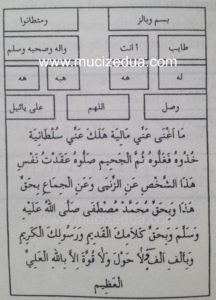 بسم وبالز ومتطانوا
طايب أ انت واله وصحبه وسلم
له هه هبه هه
وصل اللهم على ياليل
www.mucizedua.com
مَا أَغْنَى عَنِّي مَالِيَهْ هَلَكَ عَنِّي سُلْطَانِيَهْ
خُذُوهُ فَغُلُّوهُ ثُمَّ الْجَحِيمَ صَلُّوهُ عَقَدْتُ نَفْسَ
هَذَا الشَّخْصِ عَنِ الزِّنَى وَعَنِ الْجِمَاعِ بِحَقِّ
هَذَا وَبِحَقِّ مُحَمَّدٍ مُصْطَفَى صَلَّى اللهُ عَلَيْهِ
وَسَلَّمَ وَبِحَقِّ كَلَامِكَ الْقَدِيمِ وَرَسُولِكَ الْكَرِيمِ
وَبِأَلْفِ أَلْفِ لَا حَوْلَ وَلَا قُوَّةَ إِلَّا بِاللهِ الْعَلِيِّ
الْعَظِيمِ